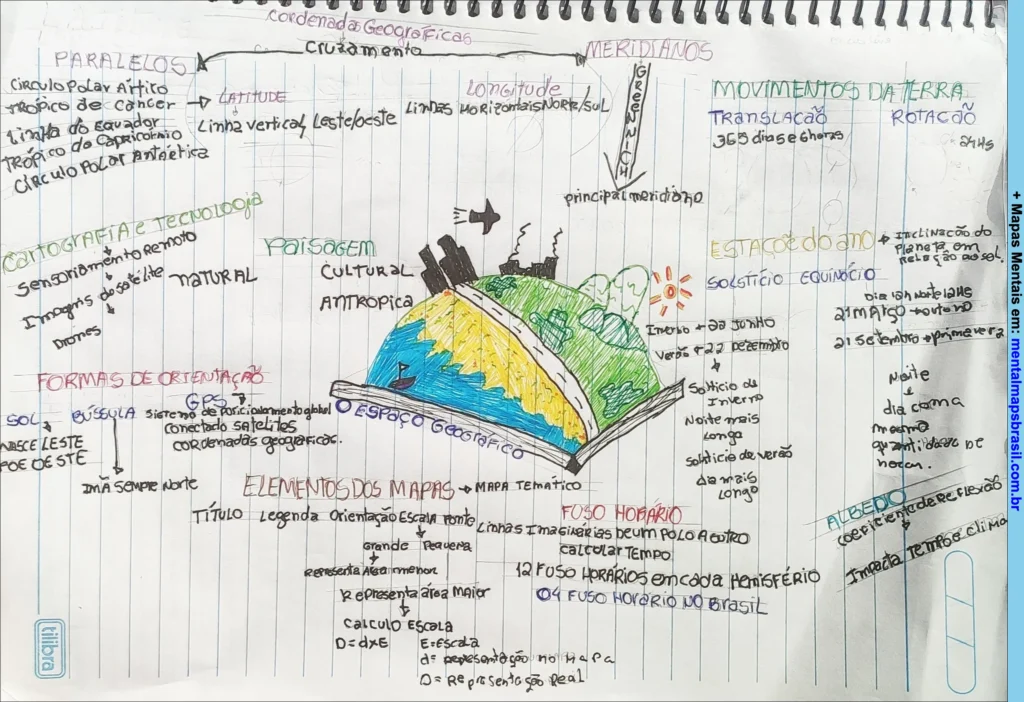 Cordenadas Geográficas
Cruzamento
PARALELOS
MERIDIANOS
Circulo Polar Ártico
Trópico de Cancer
Linha do Equador
Trópico do Capricórnio
Círculo Polar Antártica
LATITUDE
Linha vertical/Leste/oeste
Longitude
Linhas Horizontais Norte/sul
GREENWICH
principal meridiano
MOVIMENTOS DA TERRA
TRANSLAÇÃO
ROTAÇÃO
365 dias e 6 horas
24Hs
CARTOGRAFIA e TECNOLOGIA
Sensoriamento Remoto
Imagens do satelite
Drones
PAISAGEM
NATURAL
CULTURAL
ANTROPICA
ESTAÇOE DO ANO
Inclinação do
Planeta em
Relação ao sol.
SOLSTÍCIO EQUINÓCIO
Inverno + 22 JUNHO
Verão + 22 DEZEMBRO
Solticio de
Inverno
Noite mais
Longa
Solticio de verão
dia mais
Longo
Dia 12h Noite 12Hs
21 MARÇO + outono
21 Setembro + primavera
Noite
dia com a
mesmo
quantidade de
horas.
FORMAS DE ORIENTAÇÃO
SOL
NASCE LESTE
POE OESTE
BÚSSULA
IMÃ SEMPRE NORTE
GPS
Sistema de posicionamento global
conectado satelites
CORDENADAS geograficas.
O ESPAÇO GEOGRÁFICO
ELEMENTOS DOS MAPAS MAPA TEMATICO
TÍTULO Legenda Orientação Escala Fonte
Grande Pequena
Representa Área menor
Representa área Maier
Calculo Escala
D=dxE
E=Escala
d= representação no Mapa
D= Representação Real
FUSO HORÁRIO
Linhas Imaginárias de um POLO A outro
calcular TEMPO
12 FUSO HORÁRIOS em cada Hemisfério
04 FUSO HORÁRIO NO Brasil
ALBEDIO
Coeficiente de Reflexão
Impacta Tempo e Clima
tilibra
+ Mapas Mentais em: mentalmapsbrasil.com.br